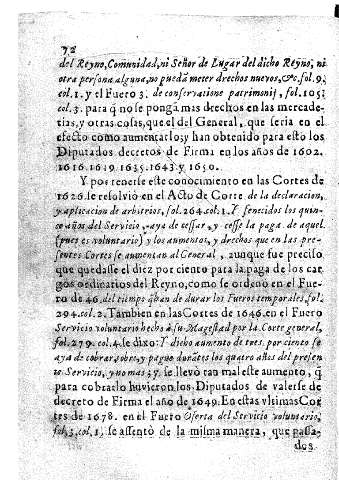 72
del Reyno, Comunidad, ni Señor de Lugar del dicho Reyno, ni
otra persona alguna, no puedã meter drechos nuevos, &c. fol. 9.
col. 1. y el Fuero 3. de conservatione patrimonij, fol. 105.
col. 3. para q̃ no se pongã mas drechos en las mercade-
rias, y otras cosas, que el del General, que seria en el
efecto como aumentarlos; y han obtenido para esto los
Diputados decretos de Firma en los años de 1602.
1616. 1619. 1635. 1643. y 1650.
Y por tenerse este conocimiento en las Cortes de
1626. se resolviò en el Acto de Corte de la declaracion,
y aplicacion de arbitrios, fol. 264. col. 1. Y fenecidos los quin-
ze años del Servicio, aya de cessar, y cesse la paga de aquel
(pues es voluntario) y los aumentos, y drechos que en las pre-
sentes Cortes se aumentan al General, aunque fue preciso
que quedasse el diez por ciento para la paga de los car-
gos ordinarios del Reyno, como se ordenò en el Fue-
ro de 46. del tiempo q̃ han de durar los Fueros temporales, fol.
294. col. 2. Tambien en las Cortes de 1646. en el Fuero
Servicio voluntario hecho à su Magestad por la Corte general,
fol. 279. col. 4. se dixo: Y dicho aumento de tres por ciento se
aya de cobrar, sobre, y pague durãtes los quatro años del presen-
te Servicio, y no mas; y se llevò tan mal este aumento, q̃
para cobrarlo huvieron los Diputados de valerse de
decreto de Firma el año de 1649. En estas vltimas Cor-
tes de 1678. en el Fuero Oferta del Servicio voluntario,
fol. 3. col. 1. se assentò de la misma manera, que passa-
dos